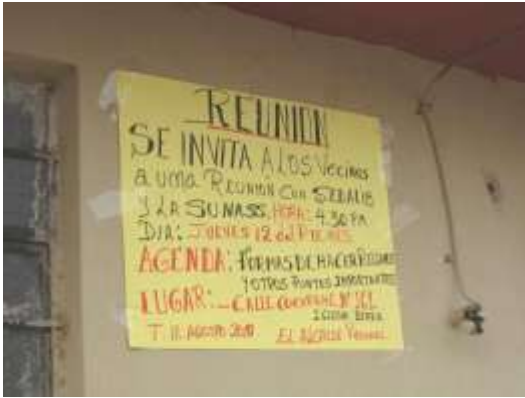 REUNION
SE INVITA A LOS Vecinos
a una REUNION CON SEDALIB
Y LA SUNASS. HORA: 4.30 PM
DIA: JUEVES 12 del PTE MES
AGENDA: FORMAS DE HACER RECLAMOS
Y OTROS PUNTOS IMPORTANTES
LUGAR: - CALLE
T. 11 AGOSTO 2010 EL ALCALDE VECINAL